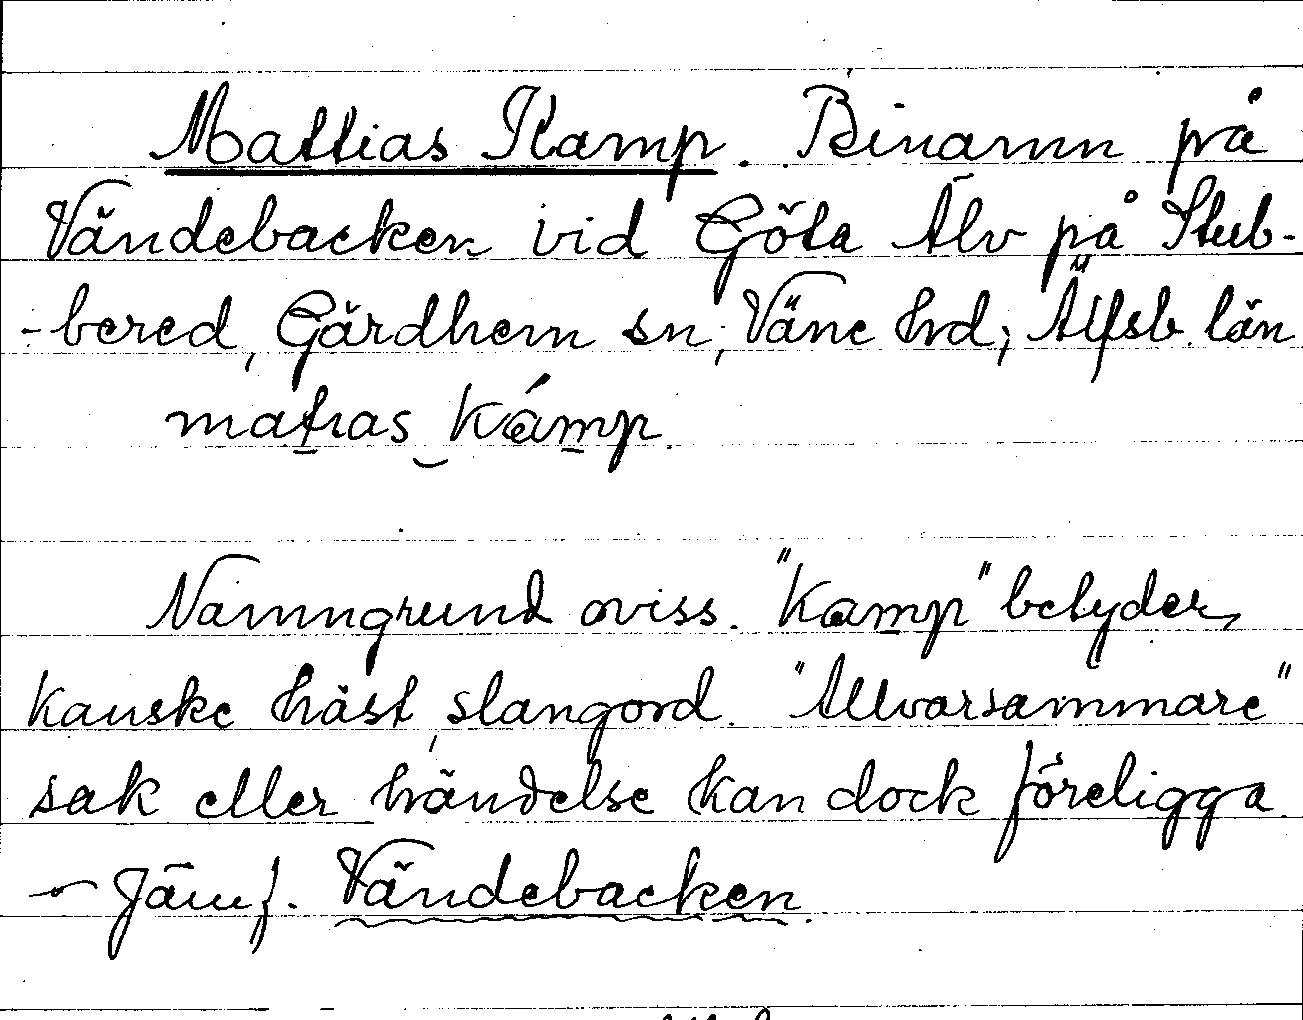 Mattias Kamp. Binamn på
Vändebacken vid Göta Älv på Stub-
-bered, Gärdhem sn, Väne hrd, Älfsb. län
matias kámp.
Namngrund oviss. "Kamp" betyder,
kanske häst, slangord. "Allvarsammare"
sak eller händelse kan dock föreligga.
– Jämf. Vändebacken.